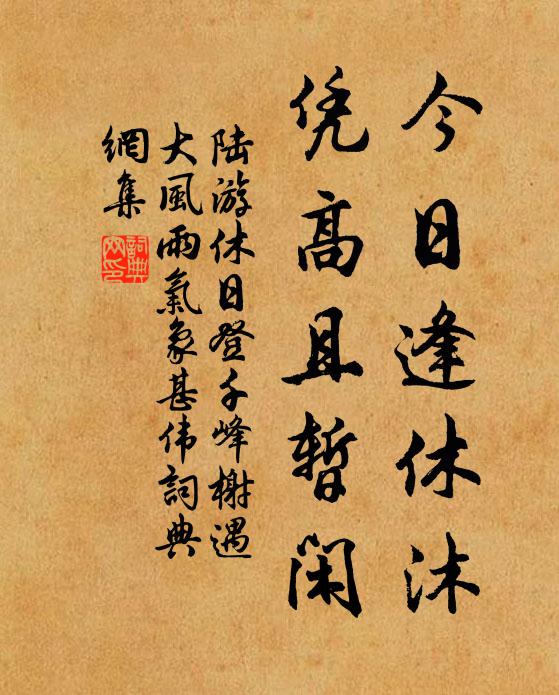 今日逢休沐
凭高且暫闲
陆游休日登千峰榭遇
大風雨氣象甚伟詞典
網集
詞典
网印